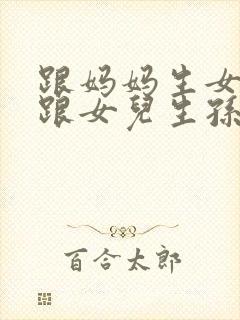 跟妈妈生女
跟女兒生孫
百合太郎